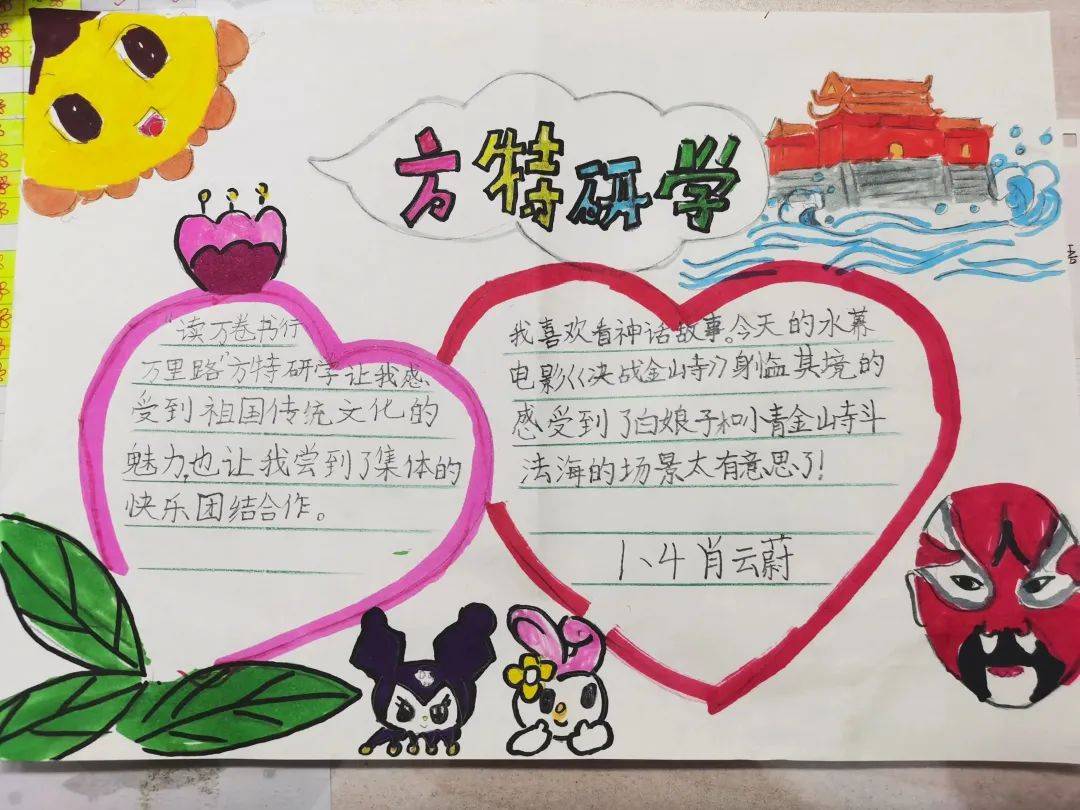 方特研学
"读万卷书行
万里路"方特研学让我感
受到祖国传统文化的
魅力,也让我尝到了集体的
快乐团结合作。
我喜欢看神话故事。今天的水幕
电影《决战金山寺》身临其境的
感受到了白娘子和小青金山寺斗
法海的场景太有意思了!
1、4 肖云蔚